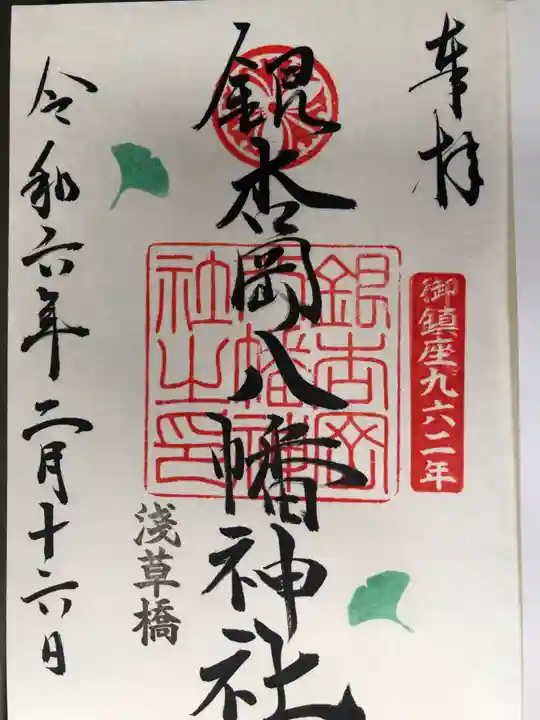 奉拝
御鎮座九六二年
銀杏岡八幡神社
銀杏岡
八幡神
社之印
淺草橋
令和六年二月十六日